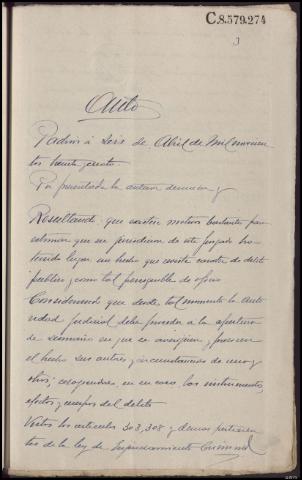 C.8.579.274
3
Auto
Padrón á seis de Abril de Mil novecien
tos treinta y cuatro
Por presentada la anterior denuncia y
Resultando que existen motivos bastantes para
estimar que en jurisdiccion de este Juzgado ha
tenido lugar un hecho que reviste caracter de delito
publico y como tal perseguible de oficio
Considerando que desde tal momento la auto
ridad judicial debe proceder a la apertura
de sumario en que se averiguen y prueven
el hecho sus autores y circunstancias de unos y
otros; recogiendose, en su caso los instrumentos,
efectos y cuerpos del delito
Vistos los articulos 303, 308 y demas pertinen
tes de la ley de Enjuiciamiento Criminal